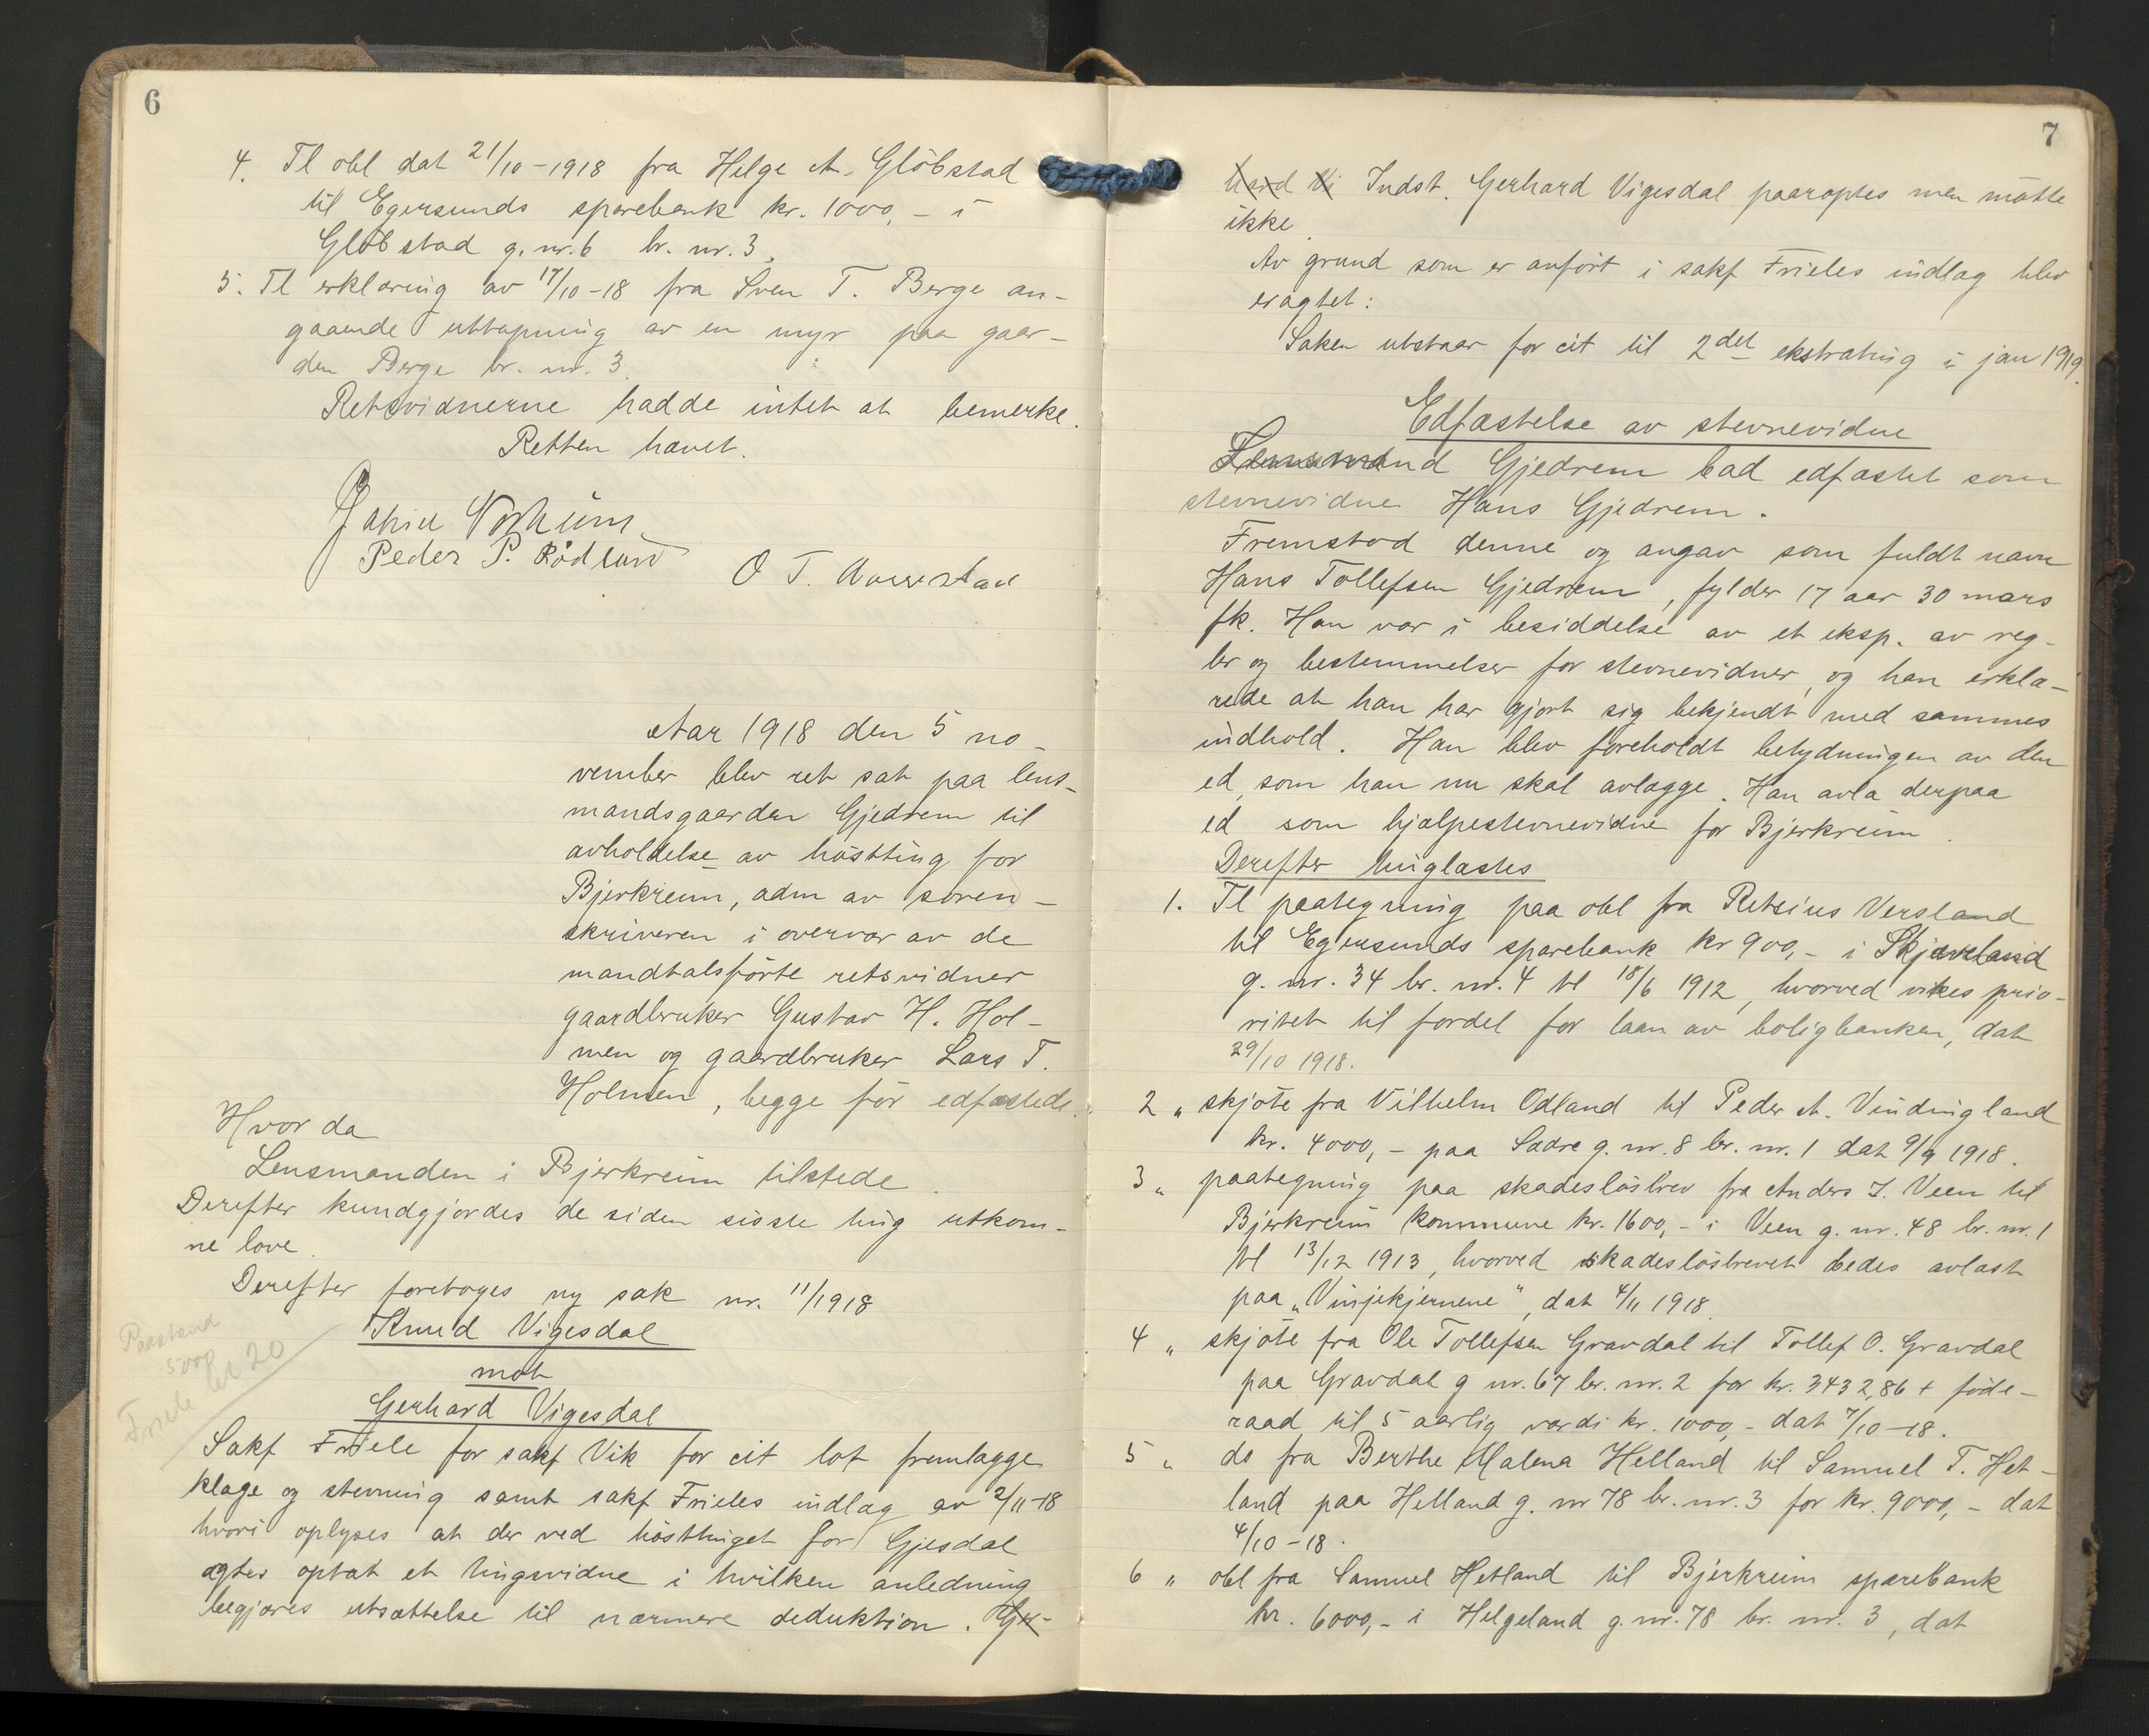 6
4. Tl obl dat 21/10-1918 fra Helge A. Glöbstad
til Egersunds sparebank kr. 1000,- i
Glöbstad g. nr. 6 br. nr. 3.
5. Tl erklæring av 17/10-18 fra Sven T. Berge an-
gaaende uttapning av en myr paa gaar-
den Berge br. nr. 3.
Retsvidnerne hadde intet at bemerke.
Retten hævet.
Peder P. Rödland
O T.
Aar 1918 den 5 no-
vember blev ret sat paa lens-
mandsgaarden Gjedrem til
avholdelse av höstting for
Bjerkreim, adm av soren-
skriveren i overvær av de
mandtalsförte retsvidner
gaardbruker Gustav H. Hol-
men og gaardbruker Lars T.
Holmen, begge för edfæstede.
Hvor da
Lensmanden i Bjerkreim tilstede.
Derefter kundgjordes de siden sisste ting utkom-
ne love.
Derefter foretoges ny sak nr. 11/1918
Paastand
500
Friele kr 20
Knud Vigesdal
mot
Gerhard Vigesdal
Sakf Friele for sakf Vik for cit lot fremlægge
klage og stevning samt sakf Frieles indlæg av 2/11-18
hvori oplyses at der ved hösttinget for Gjesdal
agtes optat et tingsvidne i hvilken anledning
begjæres utsættelse til nærmere deduktion. Ger-
7
Indst. Gerhard Vigesdal paaroptes men mötte
ikke.
Av grund som er anfört i sakf Frieles indlæg blev
eragtet:
Saken utstaar for cit til 2det ekstrating i jan 1919.
Edfæstelse av stevnevidne
Lensmand Gjedrem bad edfæstet som
stevnevidne Hans Gjedrem.
Fremstod denne og angav som fuldt navn
Hans Tollefsen Gjedrem, fylder 17 aar 30 mars
fk. Han var i besiddelse av et eksp. av reg-
ler og bestemmelser for stevnevidner, og han erklæ-
rede at han har gjort sig bekjendt med sammes
indhold. Han blev foreholdt betydningen av den
ed, som han nu skal avlægge. Han avla derpaa
ed som hjælpestevnevidne for Bjerkreim.
Derefter tinglæstes
1. Tl paategning paa obl fra Retsius Versland
til Egersunds sparebank kr 900,- i Skjæveland
g. nr. 34 br. nr. 4 tl 18/6 1912, hvorved vikes prio-
ritet til fordel for laan av boligbanken, dat
29/10 1918.
2 " skjöte fra Vilhelm Odland til Peder A. Vindingland
kr. 4000,- paa Sædre g. nr. 8 br. nr. 1 dat 9/9 1918.
3 " paategning paa skadeslösbrev fra Anders J. Veen til
Bjerkreim kommune kr. 1600,- i Veen g. nr. 48 br. nr. 1
tl 13/12 1913, hvorved skadeslösbrevet bedes avlæst
paa "Vinjekjernene", dat 4/11 1918.
4 " skjöte fra Ole Tollefsen Gravdal til Tollef O. Gravdal
paa Gravdal g nr. 67 br. nr. 2 for kr. 3432,86 + föde-
raad til 5 aarlig værdi kr. 1000,- dat 7/10-18.
5 " do fra Berthe Malena Helland til Samuel T. Het-
land paa Helland g. nr 78 br. nr. 3 for kr. 9000,- dat
4/10-18.
6 " obl fra Samuel Hetland til Bjerkreim sparebank
kr. 6000,- i Helgeland g. nr. 78 br. nr. 3, dat